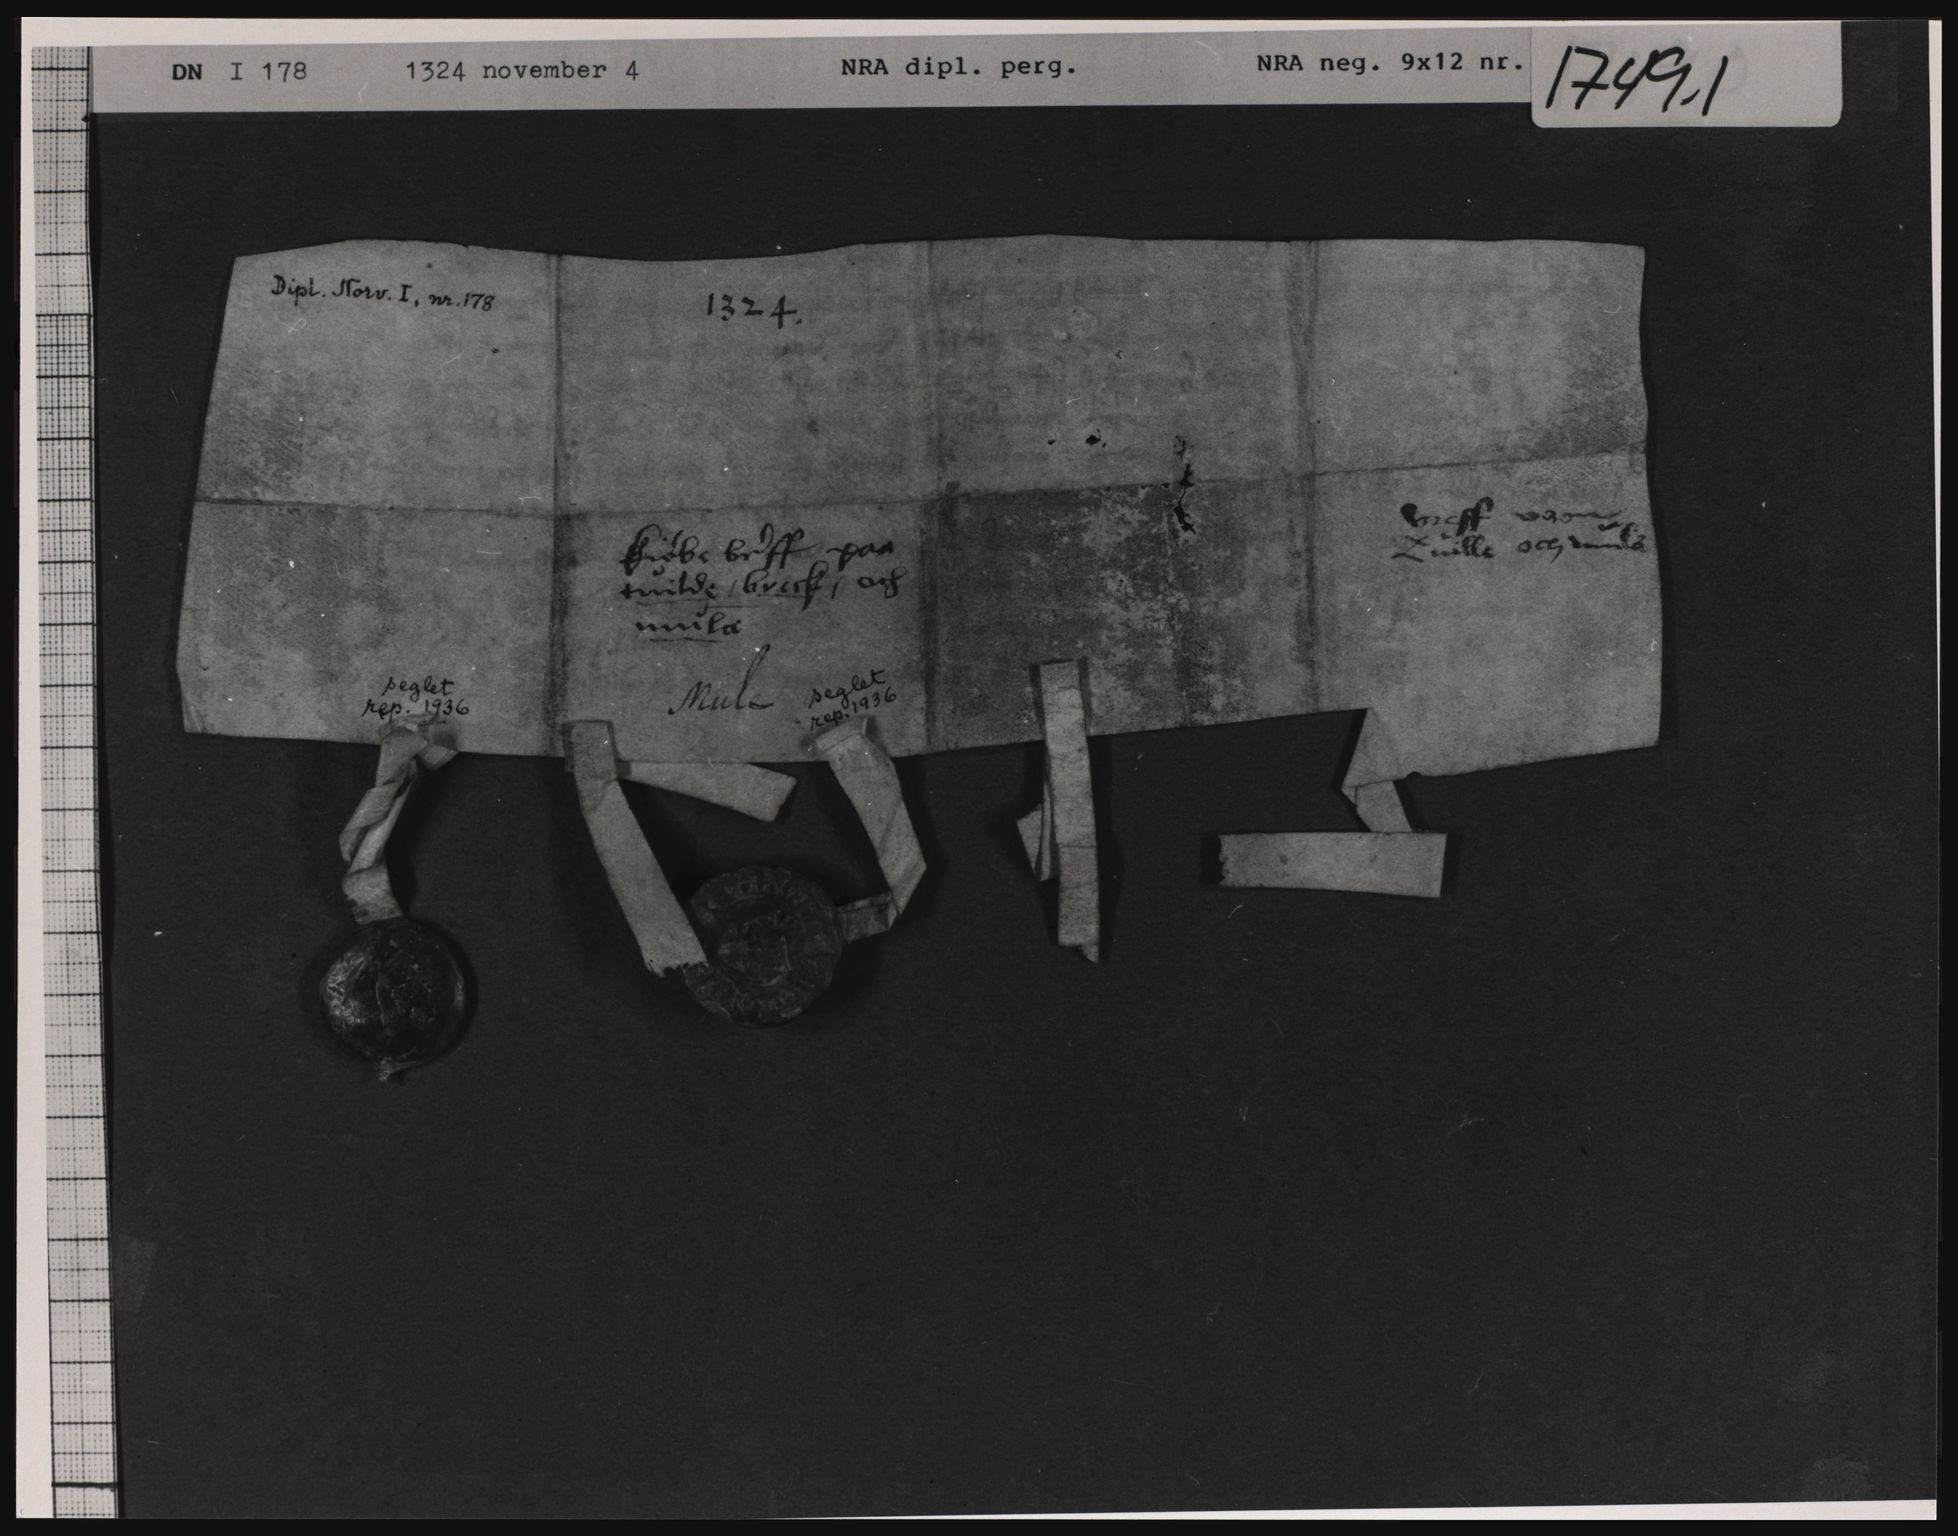 DN I 178 1324 november 4 NRA dipl. perg. NRA neg. 9x12 nr. 1749,1
Dipl. Norv. I, nr. 178
1324.
Kiøbe breff paa
tuilde / breck / och
mula
breff
Tuille och mula
Mule
seglet
rep. 1936
seglet
rep. 1936